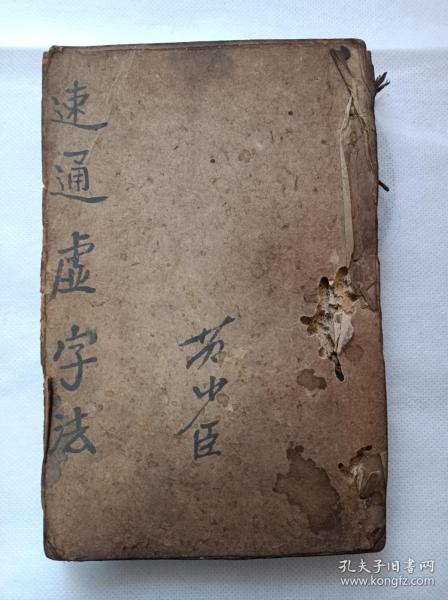 速通虚字法
孔夫子旧书网
www.kongfz.com